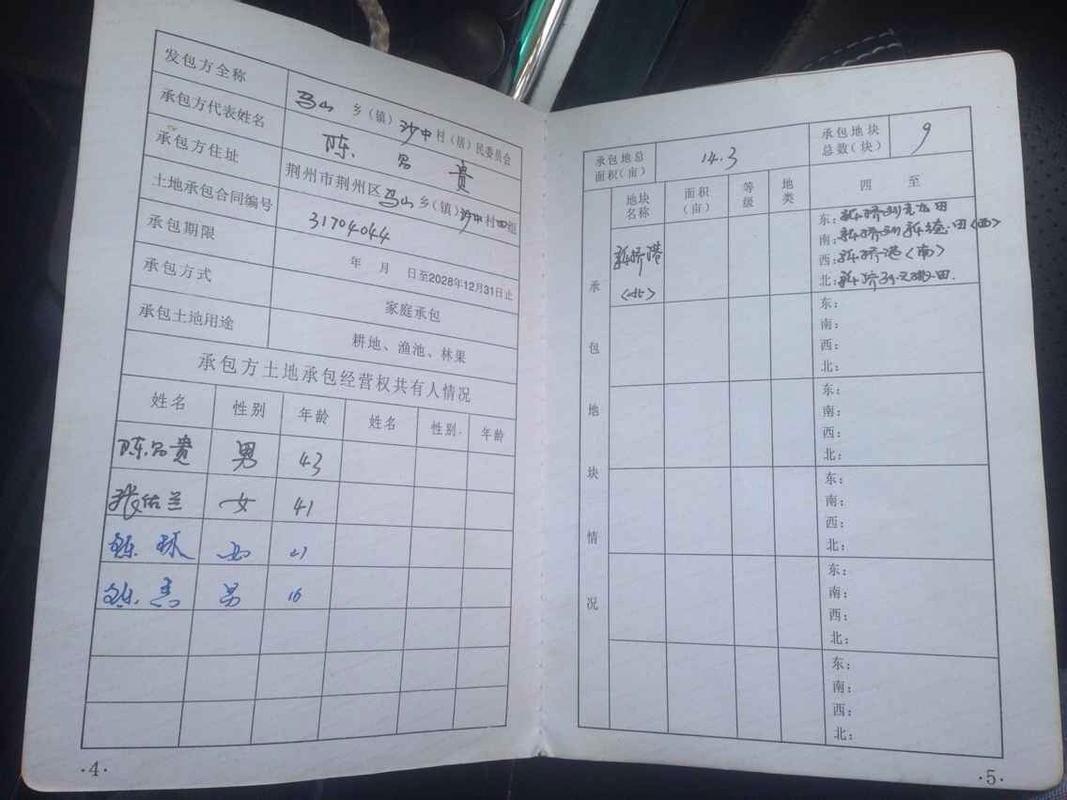 发包方全称 马山 乡(镇)沙中村(居)民委员会
承包方代表姓名 陈 昌 贵
承包方住址 荆州市荆州区马山乡(镇)沙中村四组
土地承包合同编号 31704044
承包期限 年 月 日至2028年12月31日止
承包方式 家庭承包
承包土地用途 耕地、渔池、林果
承包方土地承包经营权共有人情况
姓名 性别 年龄 姓名 性别 年龄
陈昌贵 男 43
张佑兰 女 41
陈 环 女 21
陈 男 16
·4·
承包地总面积(亩) 14.3 承包地块总数(块) 9
承包地块情况
地块名称 面积(亩) 等级 地类 四至
新桥港
〈北〉
东:
南:
西:新桥港〈南〉
北:
东:
南:
西:
北:
东:
南:
西:
北:
东:
南:
西:
北:
东:
南:
西:
北:
东:
南:
西:
北:
·5·